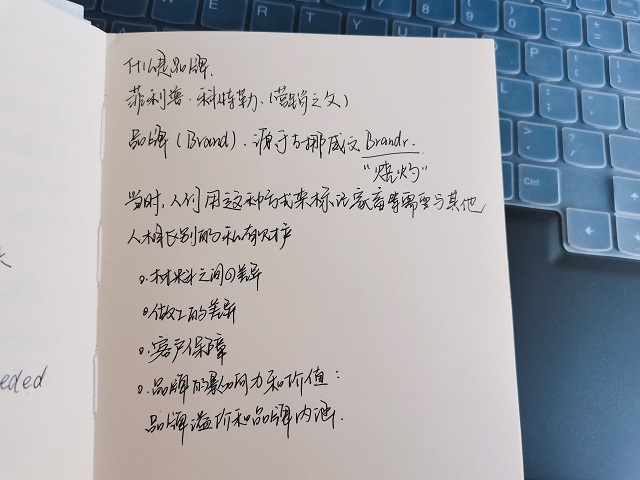 什么是品牌.
菲利普·科特勒.(营销之父)
品牌(Brand).源于古挪威文 Brandr.
"烧灼"
当时,人们用这种方式来标记家畜等需要与其他
人相区别的私有财产
。材料之间的差异
。做工的差异
。客户保障
。品牌的影响力和价值:
品牌溢价和品牌内涵.
eded
Ctrl